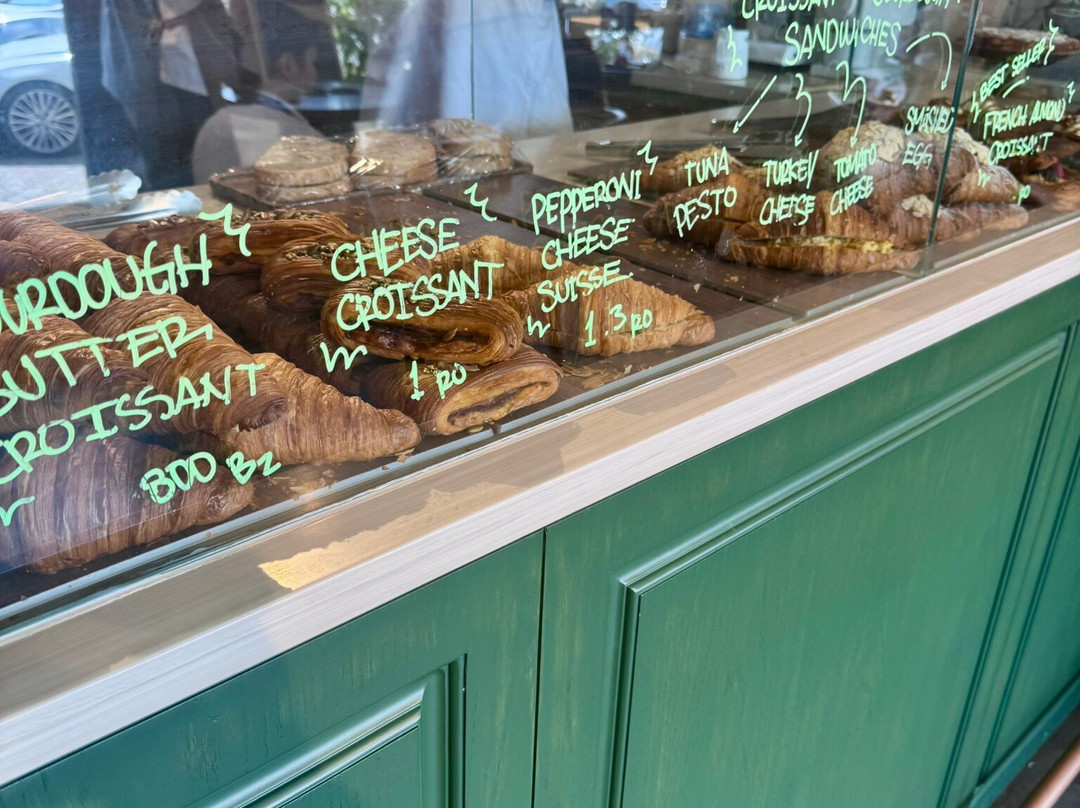 BUTTER
CROISSANT
800 Bz
CHEESE
CROISSANT
1 ро
PEPPERONI
CHEESE
SUISSE.
1.3 ро
SANDWICHES
TUNA
PESTO
TURKEY
CHEESE
TOMATO
CHEESE
SMASHED
EGG
BEST SELLER
FRENCH ALMOND
CROISSANT